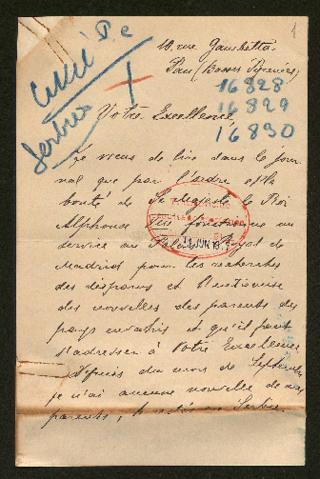 1
10, rue Gambetta.
Pau (Basses Pyrénées)
P.c
Serbie
16828
16829
16830
Votre Excellence,
Je viens de lire dans le jour-
nal que par l'ordre et la
bonté de Sa Majesté le Roi
Alphonse XIII fonctionne un
service au Palais Royal de
Madrid pour les recherches
des disparus et
des nouvelles des parents des
pays envahis et qu'il faut
s'adresser à Votre Excellence
Depuis du mois de Septembre
je n'ai aucune nouvelle de mes
parents, en Serbie.
JUN 191